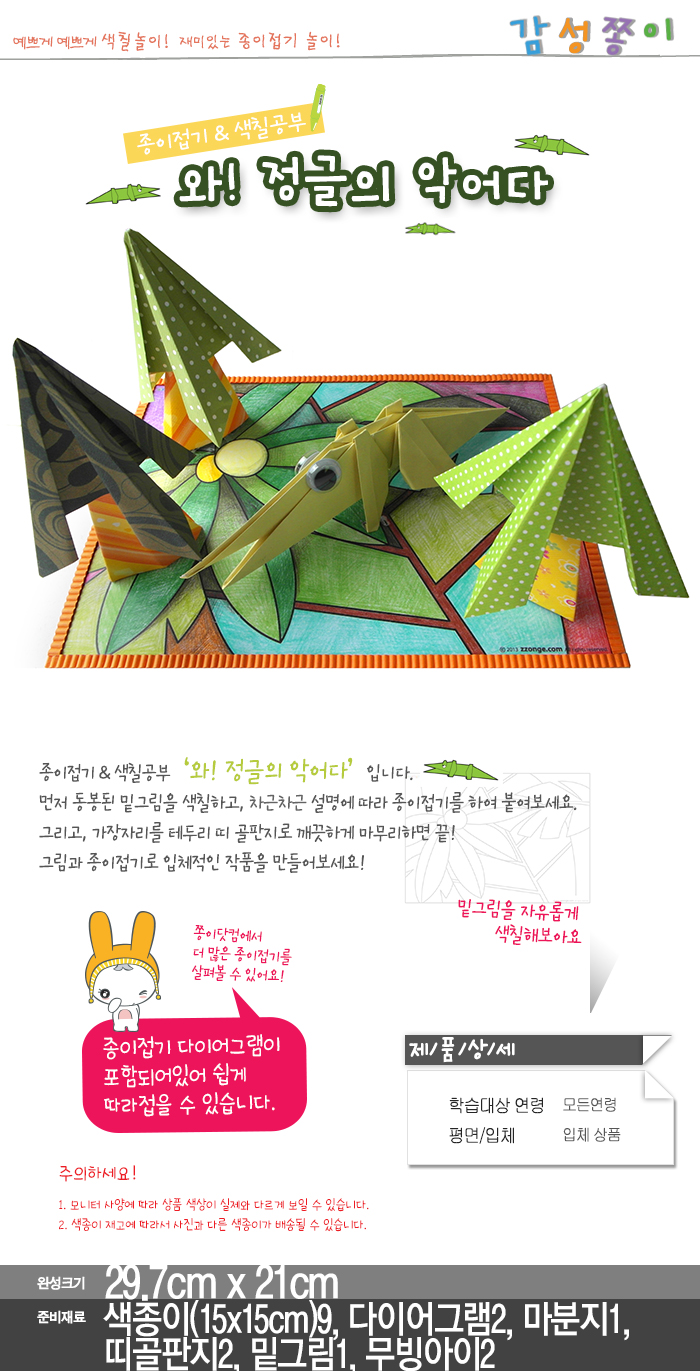 예쁘게 예쁘게 색칠놀이! 재미있는 종이접기 놀이!
감성쫑이
종이접기 & 색칠공부
와! 정글의 악어다
© 2013 zzonge.com All rights reserved.
종이접기 & 색칠공부 '와! 정글의 악어다' 입니다.
먼저 동봉된 밑그림을 색칠하고, 차근차근 설명에 따라 종이접기를 하여 붙여보세요.
그리고, 가장자리를 테두리 띠 골판지로 깨끗하게 마무리하면 끝!
그림과 종이접기로 입체적인 작품을 만들어보세요!
밑그림을 자유롭게
색칠해보아요
쫑이닷컴에서
더 많은 종이접기를
살펴볼 수 있어요!
종이접기 다이어그램이
포함되어있어 쉽게
따라접을 수 있습니다.
제/품/상/세
학습대상 연령 모든연령
평면/입체 입체 상품
주의하세요!
1. 모니터 사양에 따라 상품 색상이 실제와 다르게 보일 수 있습니다.
2. 색종이 재고에 따라서 사진과 다른 색종이가 배송될 수 있습니다.
완성크기 29.7cm x 21cm
준비재료 색종이(15x15cm)9, 다이어그램2, 마분지1,
띠골판지2, 밑그림1, 무빙아이2